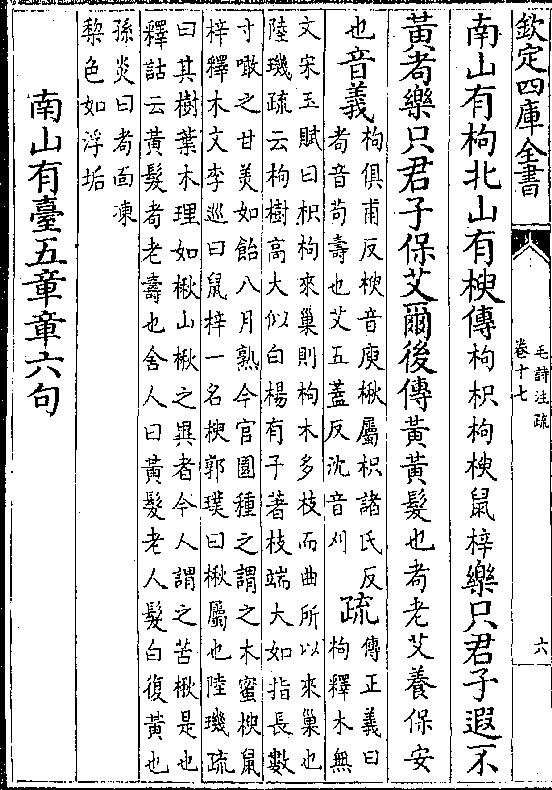 欽定四庫全書
毛詩注疏
卷十七
六
南山有枸北山有楰傳枸枳枸楰鼠梓樂只君子遐不
黃耇樂只君子保艾爾後傳黃黃髮也耇老艾養保安
也音義
枸俱甫反楰音庾楸屬枳諸氏反
耇音苟壽也艾五蓋反沈音刈
疏
傳正義曰
枸釋木無
文宋玉賦曰枳枸來巢則枸木多枝而曲所以來巢也
陸璣疏云枸樹高大似白楊有子著枝端大如指長數
寸噉之甘美如飴八月熟今官園種之謂之木蜜楰鼠
梓釋木文李巡曰鼠梓一名楰郭璞曰楸屬也陸璣疏
曰其樹葉木理如楸山楸之異者今人謂之苦楸是也
釋詁云黃髮耇老壽也舍人曰黃髮老人髮白復黃也
孫炎曰耇面凍
棃色如浮垢
南山有臺五章章六句